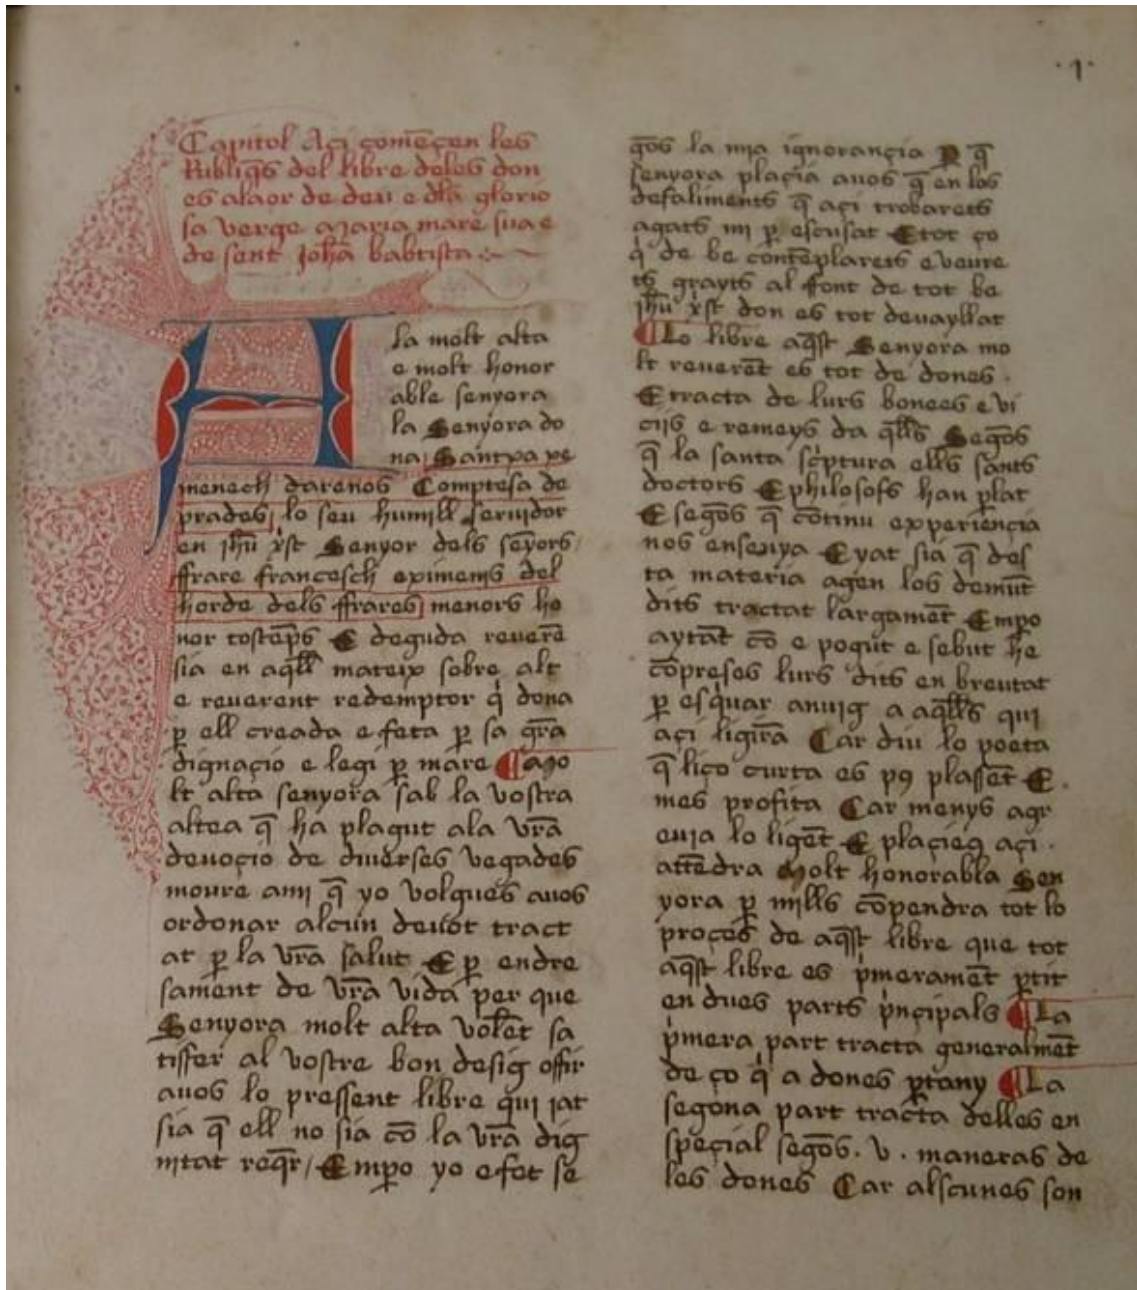 ·1·
Capitol Açi comẽçen les
Rubliq̃s del libre deles don
es alaor de deu e dl̃a glorio
sa verge maria mare sua e
de sent johã babtista
A la molt alta
e molt honor
able senyora
la Senyora do
na Santxa xe
menech darenos Comptesa de
prades lo seu humill servidor
en jhũ xp̃st Senyor dels sẽyors
ffrare francesch eximenis del
horde dels ffrares menors ho
nor tostẽps E deguda reverẽ
sia en aq̃ll mateix sobre alt
e reverent redemptor q̇ dona
ꝑ ell creada e feta ꝑ sa gr̃a
dignaçio e legi ꝑ mare ¶ Mo
lt alta senyora sab la vostra
altea q̃ ha plagut ala vr̃a
devoçio de diverses vegades
moure ami q̃ yo volgues avos
ordonar alcun devot tract
at ꝑ la vr̃a salut E ꝑ endre
sament de vr̃a vida per que
Senyora molt alta volẽt sa
tisfer al vostre bon desig offir
avos lo pressent libre qui iat
sia q̃ ell no sia cõ la vr̃a dig
nitat req̃r / Empo yo e fet se
gõs la mia ignorançia ꝑ q̃
senyora plaçia avos q̃ en los
defaliments q̃ açi trobarets
agats mi ꝑ escusat E tot ço
q̇ de be contẽplarets e veure
ts grayts al ffont de tot be
jhũ xp̃st don es tot devayllat
¶ Lo libre aq̃st Senyora mo
lt reverẽt es tot de dones .
E tracta de lurs bonees e vi
ciis e remeys da q̃lls Segõs
q̃ la santa sc̓ptura ells sants
doctors E philosofs han ꝑlat
E segõs q̃ cõtinu experiẽncia
nos ensenya E yat sia q̃ des
ta materia agen los demũt
dits tractat largamẽt Empo
aytãt cõ e pogut e sebut he
cõpreses lurs dits en breutat
ꝑ esq̇var anuig a aq̃lls qui
açi ligirã Car diu lo poeta
q̃ liço curta es pꝯ plassẽt E .
mes profita Car menys agr
euia lo ligẽt E plaçieq̃ açi .
attẽdra Molt honorabla Sen
yora ꝑ mills cõpendra tot lo
proçes de aq̃st libre que tot
aq̃st libre es p̓meramẽt ꝑtit
en dues parts p̓nçipals ¶ La
p̓mera part tracta generalmẽt
de ço q̇ a dones ꝑtany ¶ La
segona part tracta delles en
speçial segõs . v . maneras de
les dones Car alscunes son